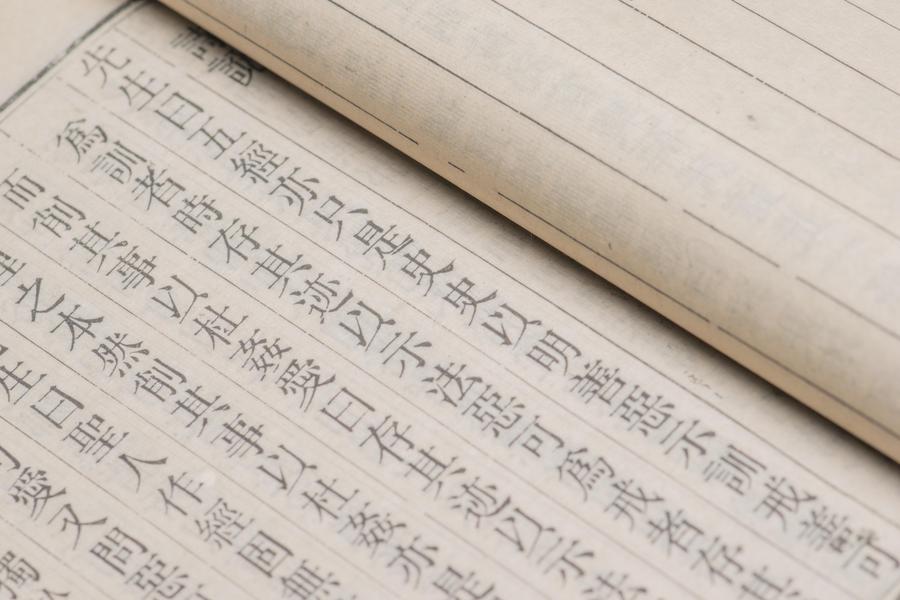 先生曰五經亦只是史史以明善惡示訓戒善可
爲訓者時存其迹以示法惡可爲戒者存其
而削其事以杜姦愛曰存其迹以示法
之本然削其事以杜姦亦是
生曰聖人作經固無
愛又問惡